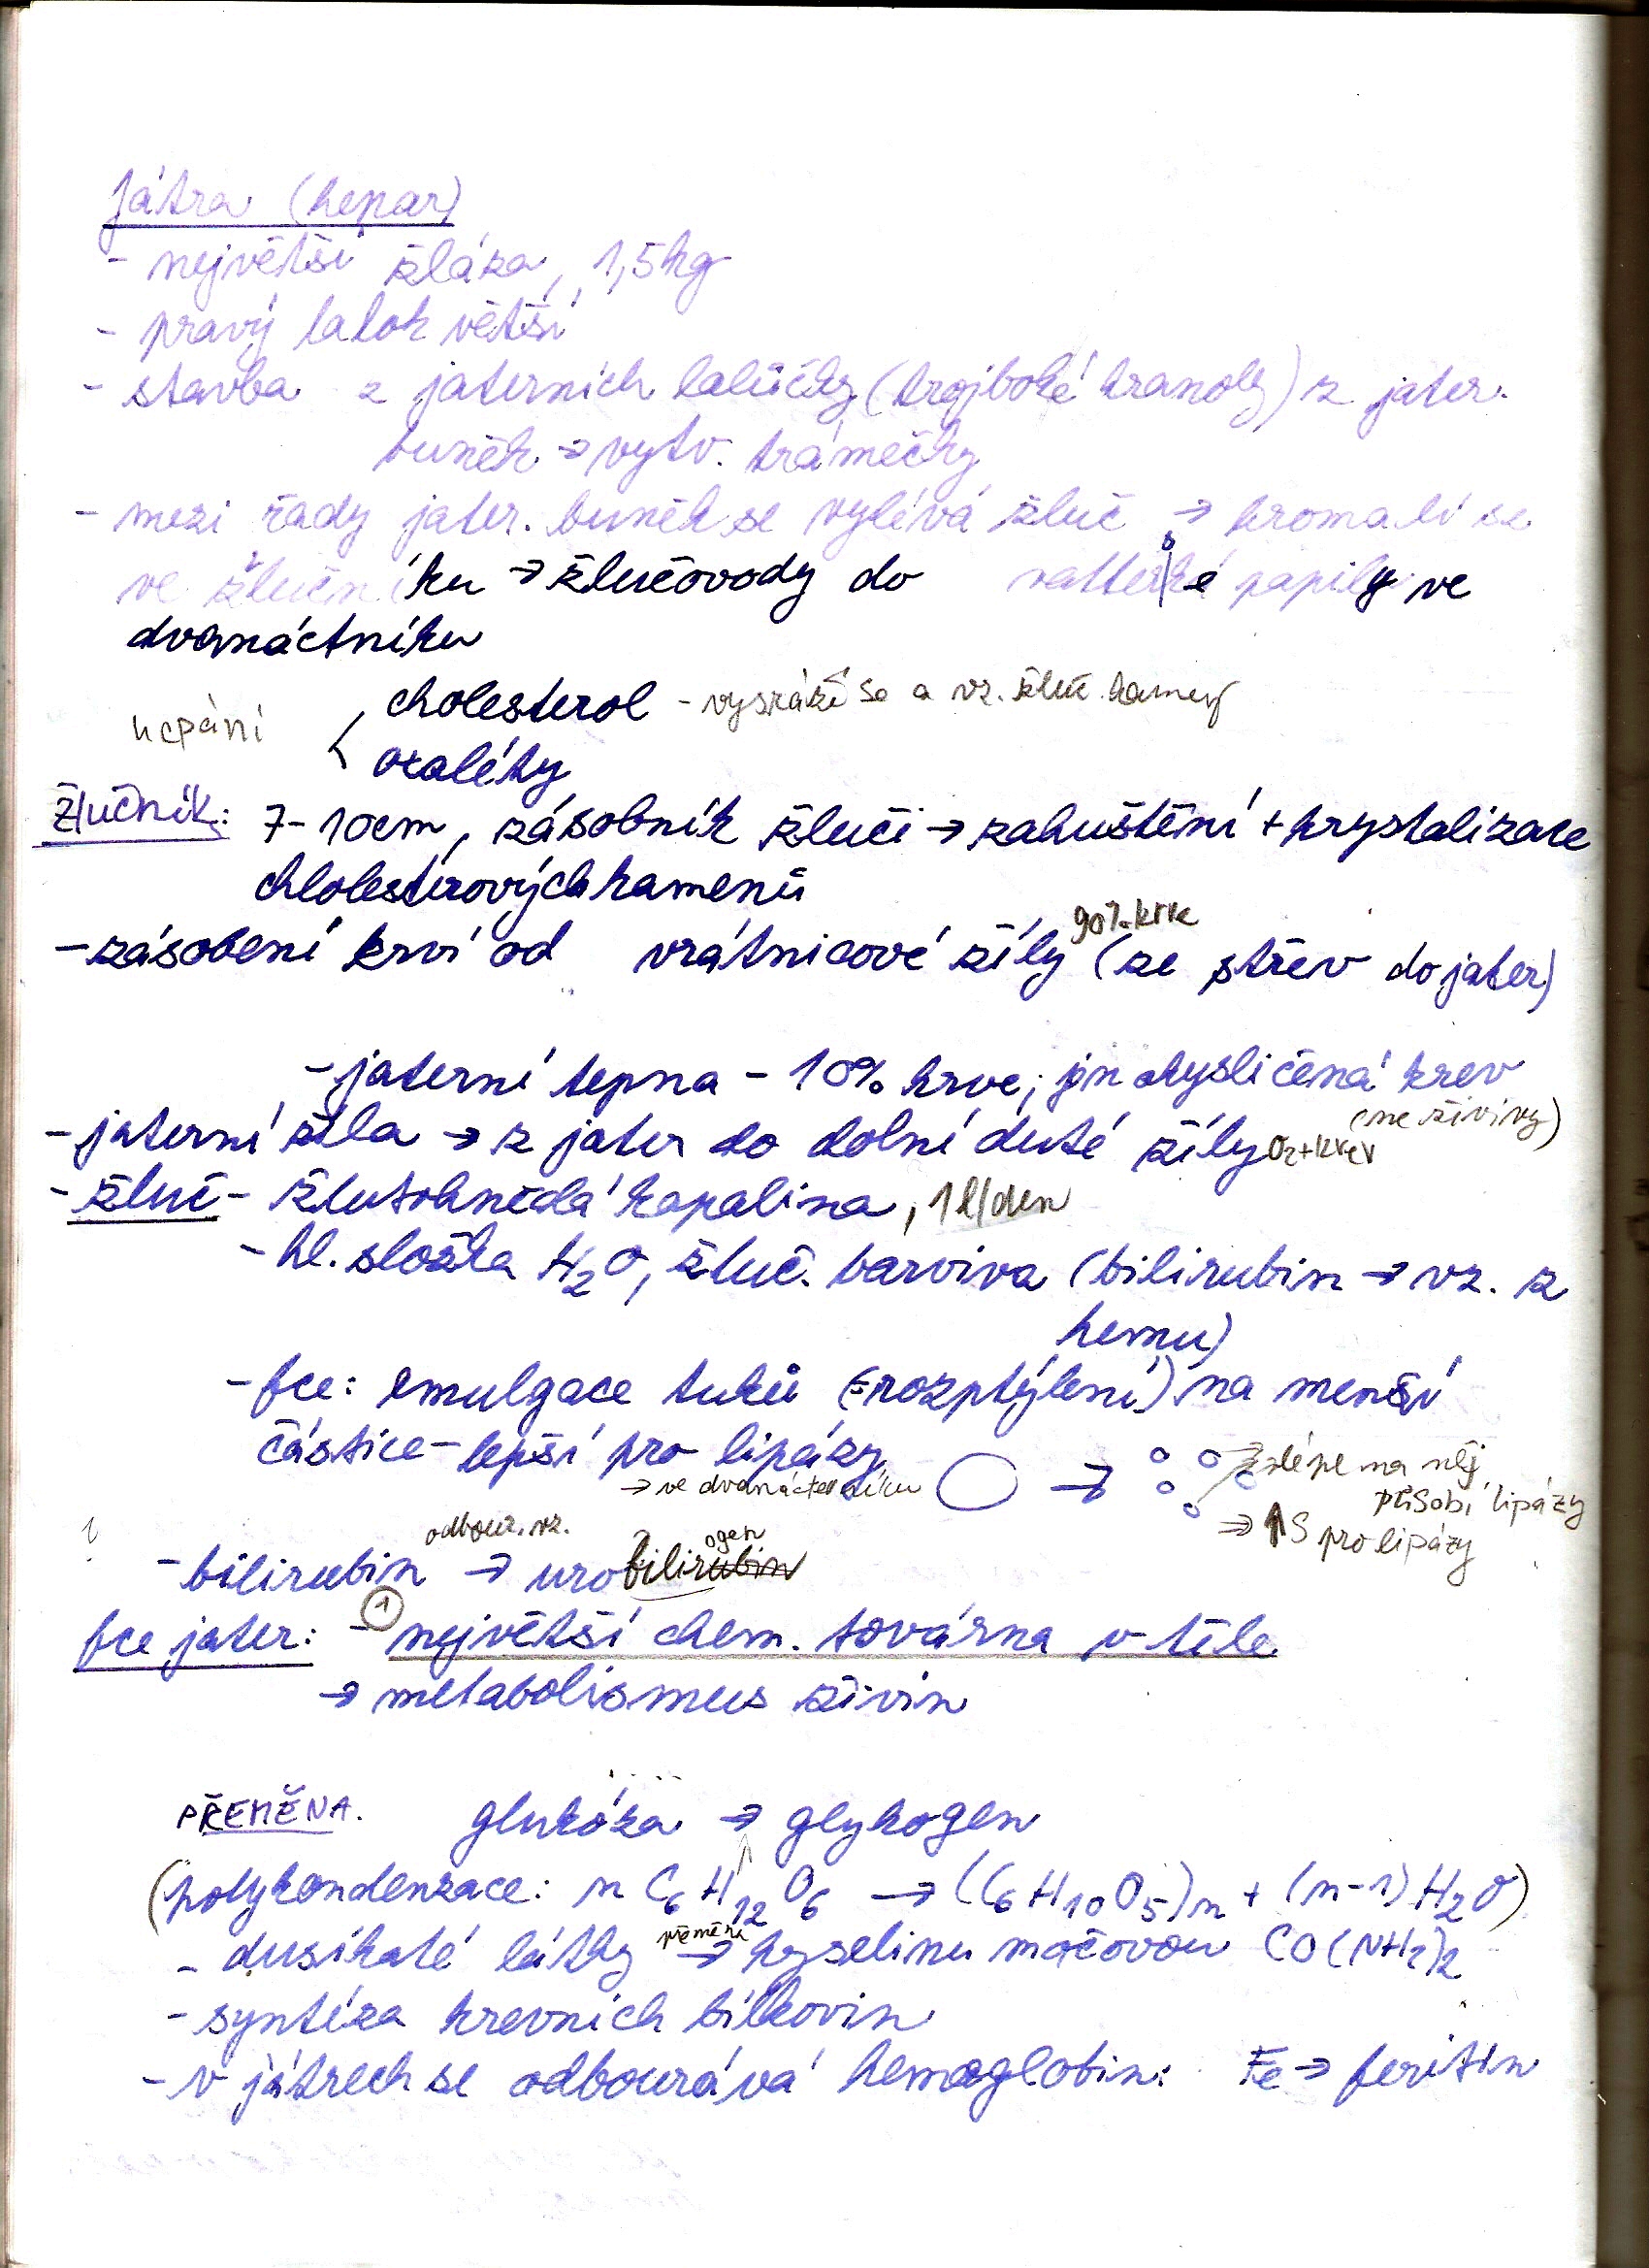 Játra (hepar)
- největší žláza, 1,5kg
- pravý lalok větší
- stavba z jaterních lalůčky (trojboké hranoly) z jater.
buněk → vytv. trámečky
- mezi řady jater. buněk se vylévá žluč → hromadí se
ve žlučníku → žlučovody do vatterské papily ve
dvanáctníku
cholesterol - vysráží se a vz. žluč. kameny
oxaláty
Žlučník: 7-10cm, zásobník žluči → zahuštění + krystalizace
chlolesterových kamenů
90% krve
- zásobení krví od vrátnicové žíly (ze střev do jater)
- jaterní tepna - 10% krve; jen okysličená krev
(ne živiny)
- jaterní žíla → z jater do dolní duté žíly O2+krev
- žluč - žlutohnědá kapalina, 1l/den
- hl. složka H2O, žluč. barviva (bilirubin → vz. z
hemu)
- fce: emulgace tuků (=rozptýlení) na menší
částice - lepší pro lipázy → → lépe na něj
→ ve dvanácterníku působí lipázy
→ ↑S pro lipázy
odbour. vz. ogen
- bilirubin → urobilirubin
fce jater: - 1 největší chem. továrna v těle
→ metabolismus živin
PŘEMĚNA. glukóza → glykogen
(polykondenzace: n C6H12O6 → (C6H10O5)n + (n-1) H2O)
přeměna
- dusíkaté látky → kyselinu močovou CO(NH2)2
- syntéza krevních bílkovin
- v játrech se odbourává hemoglobin: Fe → feritin